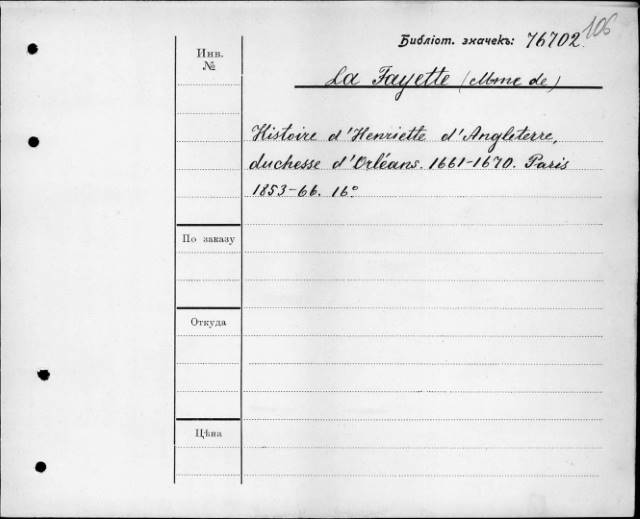 106
Библіот. значекъ: 76702.
Инв.
№
La Fayette (Mme de)
Histoire d'Henriette d'Angleterre,
duchesse d'Orléans. 1661-1670. Paris
1853-66. 16°
По заказу
Откуда
Цѣна